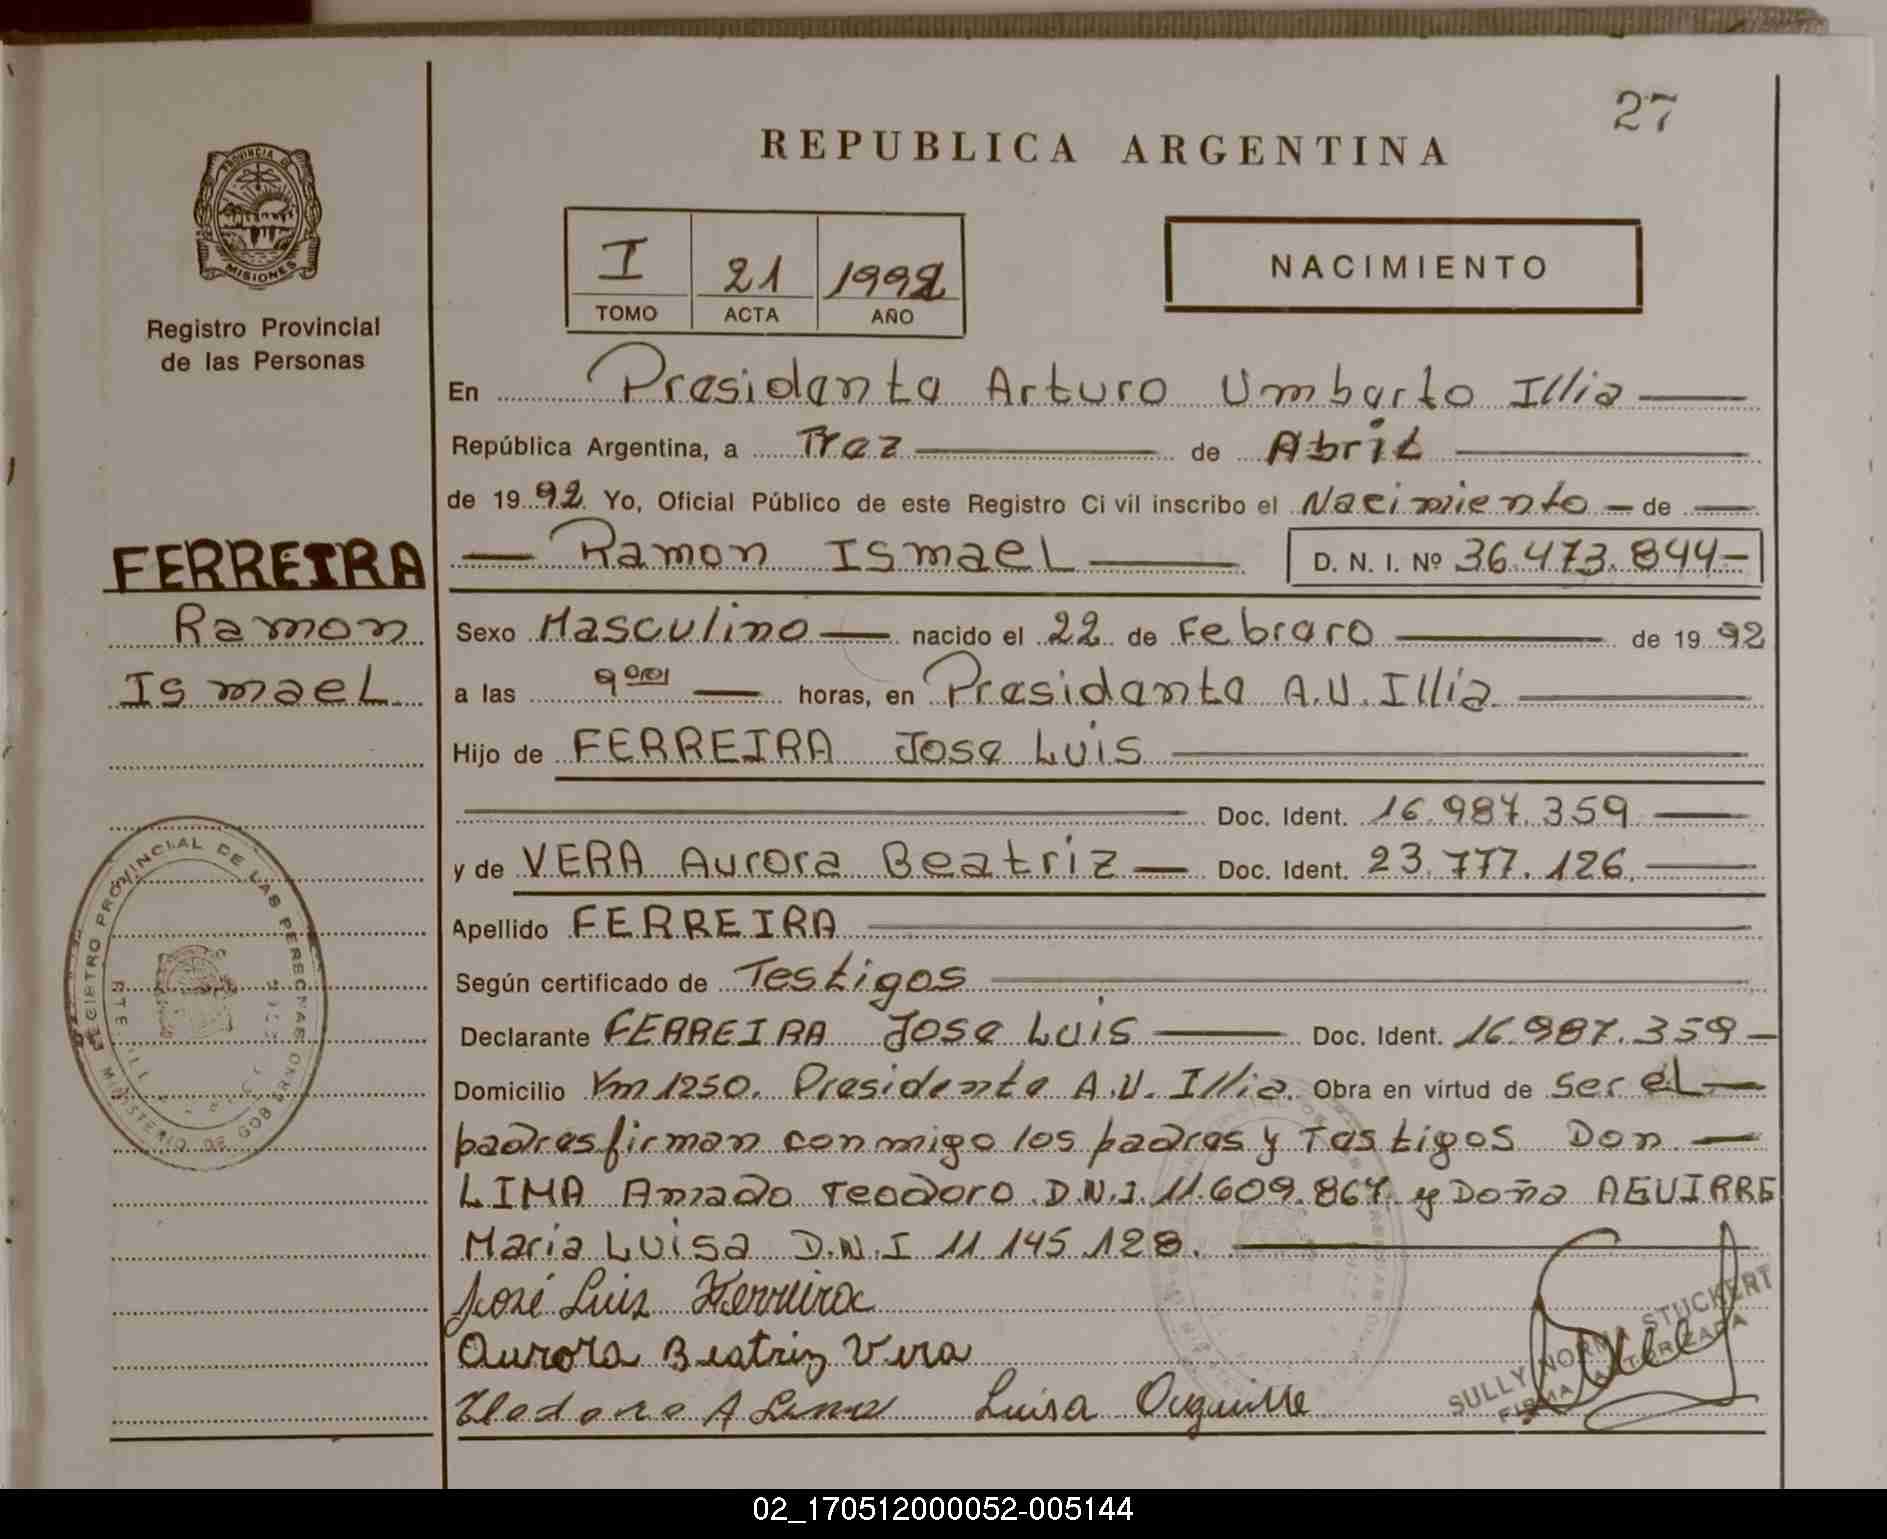 27
REPUBLICA ARGENTINA
PROVINCIA DE
MISIONES
Registro Provincial
de las Personas
I 21 1992
TOMO ACTA AÑO
NACIMIENTO
En Presidente Arturo Umberto Illia
República Argentina, a Trez de Abril
de 1992 Yo, Oficial Público de este Registro Civil inscribo el Nacimiento de
FERREIRA
Ramon
Ismael
Ramon Ismael D. N. I. Nº 36.473.844-
Sexo Masculino nacido el 22 de Febrero de 1992
a las 9 horas, en Presidente A.U. Illia
Hijo de FERREIRA Jose Luis
Doc. Ident. 16.987.359
y de VERA Aurora Beatriz Doc. Ident. 23.777.126.
Apellido FERREIRA
Según certificado de Testigos
Declarante FERREIRA Jose Luis Doc. Ident. 16.987.359
Domicilio Km 1250. Presidente A.U. Illia. Obra en virtud de ser el
padres firman conmigo los padres y Testigos Don
LIMA Amado Teodoro D.N.I. 11.609.867 y Doña AGUIRRE
Maria Luisa D.N.I 11 145 128.
José Luis Ferreira
Aurora Beatriz Vera
Teodoro A Lima Luisa Aguirre
SULLY NORMA STUCKERT
FIRMA AUTORIZADA
REGISTRO PROVINCIAL DE LAS PERSONAS
MINISTERIO DE GOBIERNO
02_170512000052-005144